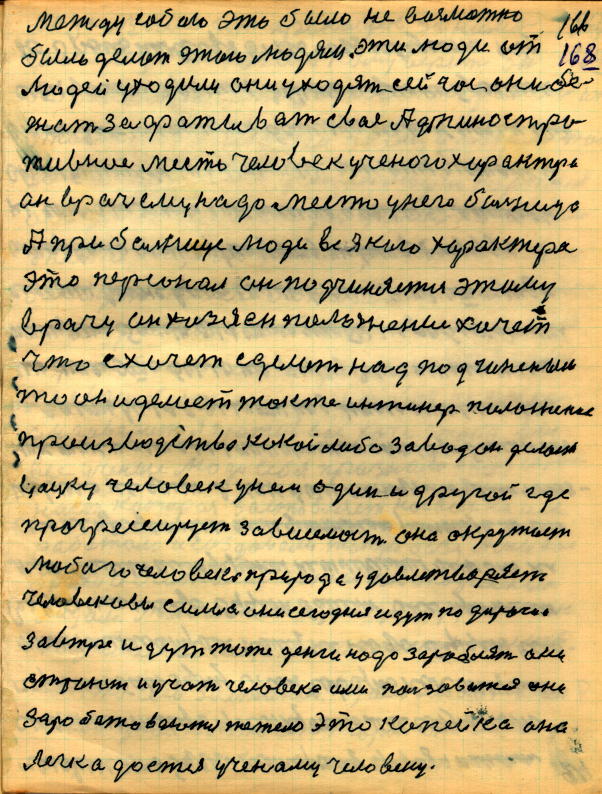 между собою это было не возможно
166
быль делат этого людям. эти люди от
168
людей уходили они уходят сейчас они бе-
жат за фатив ат свае Административно
тивное месть человек ученого характра
он врач ему надо место у него болница
А при болнице люди всякого характера
это персонал он подчиняется этому
врачу он хозяен положение хочет
что схочет сделат над подчиненым
то он и делает также инжинер положение
произведство какой либо завод он делает
науку человек у нем один и другой где
прогрессирует зависемост она окружает
любого человека природа удовлетваряет
человековы силы они сегодня идут по дороге
завтре идут тоже денги надо заработ они
стряют и учат человека ими ползоватся они
заработоваются тежело это копейка она
легка достся ученаму человеку.